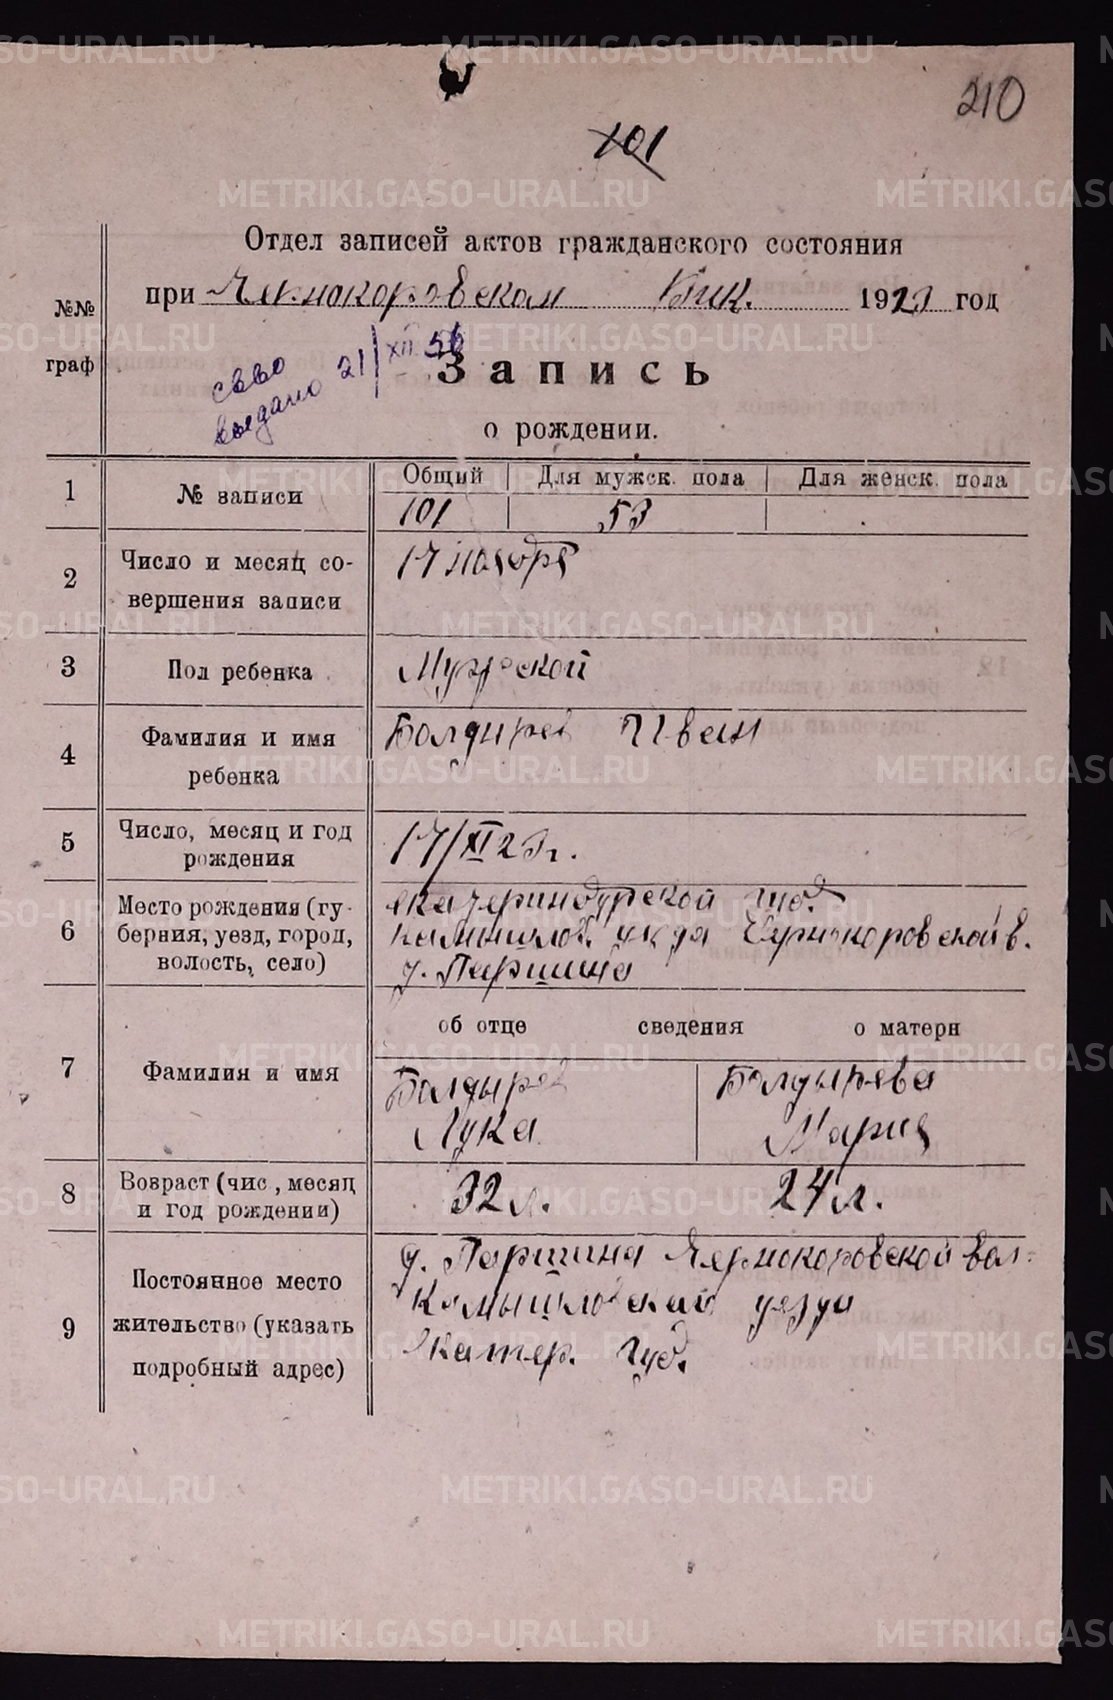 210
101
Отдел записей актов гражданского состояния
при Чернокоровском Вик. 1923 год
№№
граф
св-во
выдано 21/XII 56
Запись
о рождении.
1 № записи Общий Для мужск. пола Для женск. пола
101 53
2 Число и месяц со-
вершения записи
17 ноября
3 Пол ребенка Мужской
4 Фамилия и имя
ребенка
Болдырев Иван
5 Число, месяц и год
рождения
17/XI 23 г.
6 Место рождения (гу-
берния, уезд, город,
волость, село)
Екатеринбургской губ.
Камышлов. уезда Чернокоровской в.
д. Паршина
об отце сведения о матери
7 Фамилия и имя
Болдырев
Лука
Болдырева
Мария
8 Возраст (чис., месяц
и год рождении)
32 л. 24 л.
9 Постоянное место
жительство (указать
подробный адрес)
д. Паршина Чернокоровской вол.
Камышловского уезда
Екатер. губ.
METRIKI.GASO-URAL.RU